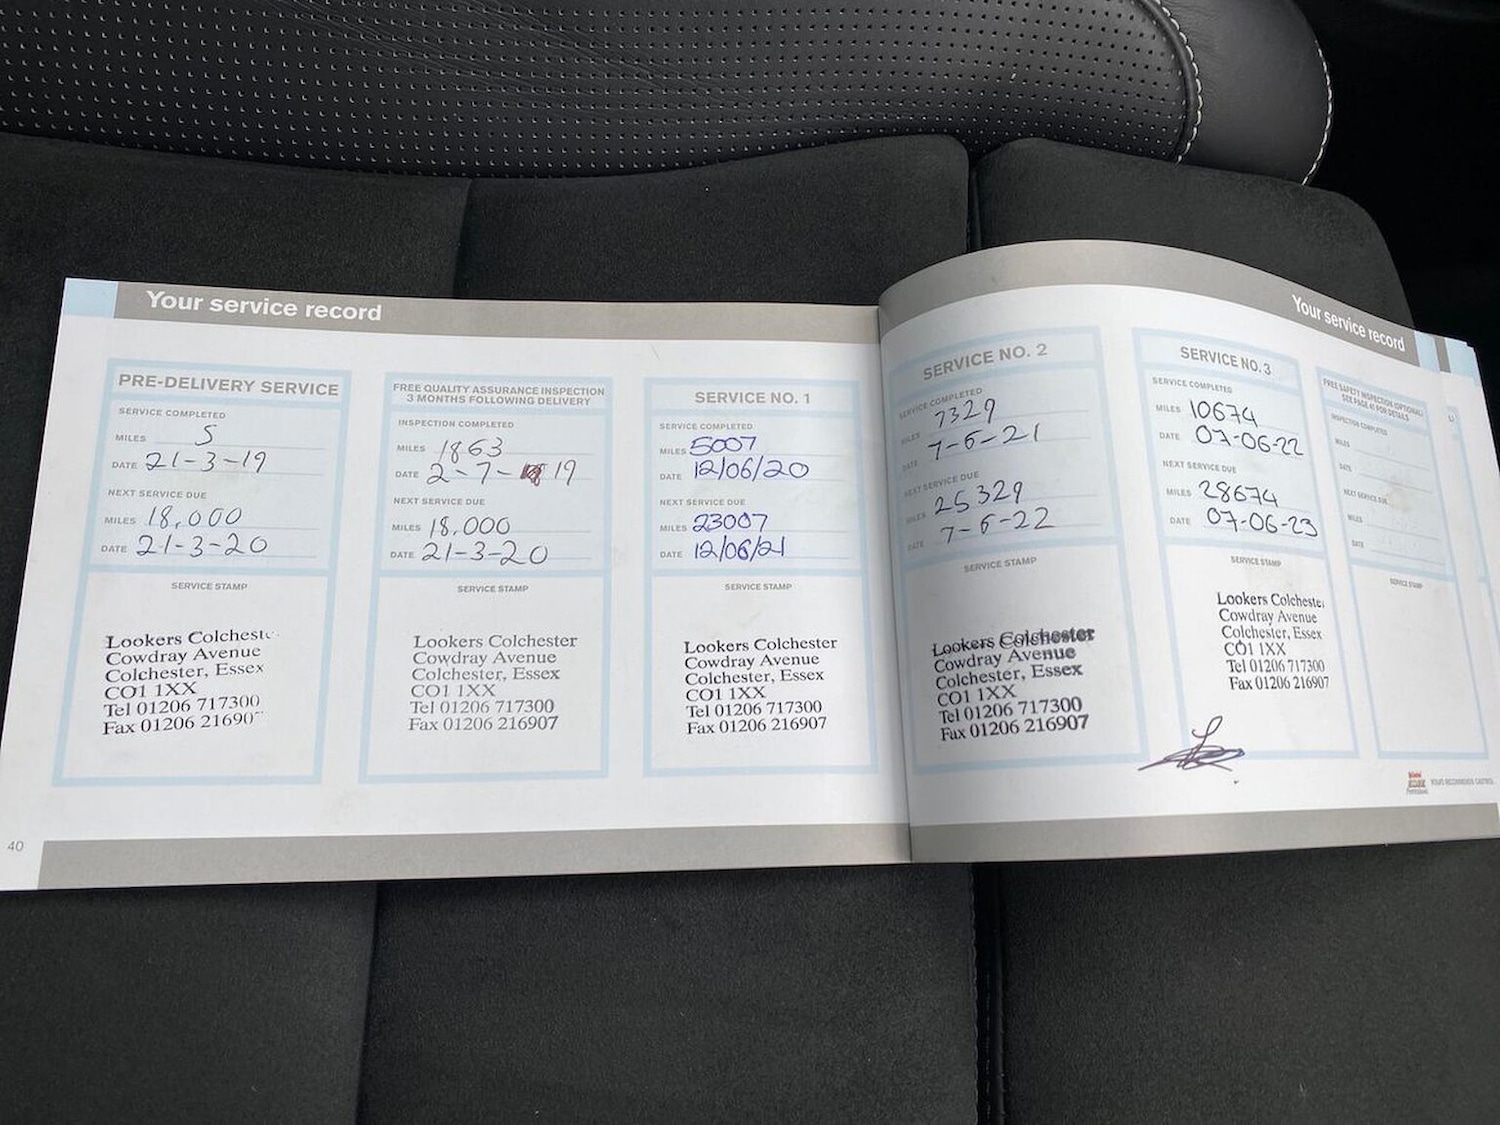 Your service record
PRE-DELIVERY SERVICE
SERVICE COMPLETED
MILES 5
DATE 21-3-19
NEXT SERVICE DUE
MILES 18,000
DATE 21-3-20
SERVICE STAMP
Lookers Colcheste
Cowdray Avenue
Colchester, Essex
CO1 1XX
Tel 01206 717300
Fax 01206 21690
FREE QUALITY ASSURANCE INSPECTION
3 MONTHS FOLLOWING DELIVERY
INSPECTION COMPLETED
MILES 1863
DATE 2-7-19
NEXT SERVICE DUE
MILES 18,000
DATE 21-3-20
SERVICE STAMP
Lookers Colchester
Cowdray Avenue
Colchester, Essex
CO1 1XX
Tel 01206 717300
Fax 01206 216907
SERVICE NO. 1
SERVICE COMPLETED
MILES 5007
DATE 12/06/20
NEXT SERVICE DUE
MILES 23007
DATE 12/06/21
SERVICE STAMP
Lookers Colchester
Cowdray Avenue
Colchester, Essex
CO1 1XX
Tel 01206 717300
Fax 01206 216907
40
Your service record
SERVICE NO. 2
SERVICE COMPLETED
MILES 7329
DATE 7-6-21
NEXT SERVICE DUE
MILES 25329
DATE 7-6-22
SERVICE STAMP
Lookers Colchester
Cowdray Avenue
Colchester, Essex
CO1 1XX
Tel 01206 717300
Fax 01206 216907
SERVICE NO. 3
SERVICE COMPLETED
MILES 10674
DATE 07-06-22
NEXT SERVICE DUE
MILES 28674
DATE 07-06-23
SERVICE STAMP
Lookers Colcheste
Cowdray Avenue
Colchester, Essex
CO1 1XX
Tel 01206 717300
Fax 01206 216907
FREE SAFETY INSPECTION (OPTIONAL)
SEE PAGE 41 FOR DETAILS
INSPECTION COMPLETED
MILES
DATE
NEXT SERVICE DUE
MILES
DATE
SERVICE STAMP
VOLVO RECOMMENDS CASTROL